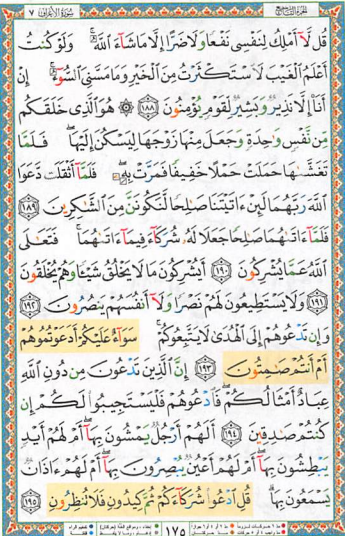 الجزء التاسع سورة الأعراف ٧
قُل لَّآ أَمْلِكُ لِنَفْسِي نَفْعًا وَلَا ضَرًّا إِلَّا مَا شَآءَ ٱللَّهُ ۚ وَلَوْ كُنتُ
أَعْلَمُ ٱلْغَيْبَ لَٱسْتَكْثَرْتُ مِنَ ٱلْخَيْرِ وَمَا مَسَّنِيَ ٱلسُّوٓءُ ۚ إِنْ
أَنَا۠ إِلَّا نَذِيرٌ وَبَشِيرٌ لِّقَوْمٍ يُؤْمِنُونَ ١٨٨ ۞ هُوَ ٱلَّذِي خَلَقَكُم
مِّن نَّفْسٍ وَٰحِدَةٍ وَجَعَلَ مِنْهَا زَوْجَهَا لِيَسْكُنَ إِلَيْهَا ۖ فَلَمَّا
تَغَشَّىٰهَا حَمَلَتْ حَمْلًا خَفِيفًا فَمَرَّتْ بِهِۦ ۖ فَلَمَّآ أَثْقَلَت دَّعَوَا
ٱللَّهَ رَبَّهُمَا لَئِنْ ءَاتَيْتَنَا صَٰلِحًا لَّنَكُونَنَّ مِنَ ٱلشَّٰكِرِينَ ١٨٩
فَلَمَّآ ءَاتَىٰهُمَا صَٰلِحًا جَعَلَا لَهُۥ شُرَكَآءَ فِيمَآ ءَاتَىٰهُمَا ۚ فَتَعَٰلَى
ٱللَّهُ عَمَّا يُشْرِكُونَ ١٩٠ أَيُشْرِكُونَ مَا لَا يَخْلُقُ شَيْـًٔا وَهُمْ يُخْلَقُونَ
١٩١ وَلَا يَسْتَطِيعُونَ لَهُمْ نَصْرًا وَلَآ أَنفُسَهُمْ يَنصُرُونَ ١٩٢
وَإِن تَدْعُوهُمْ إِلَى ٱلْهُدَىٰ لَا يَتَّبِعُوكُمْ ۚ سَوَآءٌ عَلَيْكُمْ أَدَعَوْتُمُوهُمْ
أَمْ أَنتُمْ صَٰمِتُونَ ١٩٣ إِنَّ ٱلَّذِينَ تَدْعُونَ مِن دُونِ ٱللَّهِ
عِبَادٌ أَمْثَالُكُمْ ۖ فَٱدْعُوهُمْ فَلْيَسْتَجِيبُوا۟ لَكُمْ إِن
كُنتُمْ صَٰدِقِينَ ١٩٤ أَلَهُمْ أَرْجُلٌ يَمْشُونَ بِهَآ ۖ أَمْ لَهُمْ أَيْدٍ
يَبْطِشُونَ بِهَآ ۖ أَمْ لَهُمْ أَعْيُنٌ يُبْصِرُونَ بِهَآ ۖ أَمْ لَهُمْ ءَاذَانٌ
يَسْمَعُونَ بِهَا ۗ قُلِ ٱدْعُوا۟ شُرَكَآءَكُمْ ثُمَّ كِيدُونِ فَلَا تُنظِرُونِ ١٩٥
١٧٥